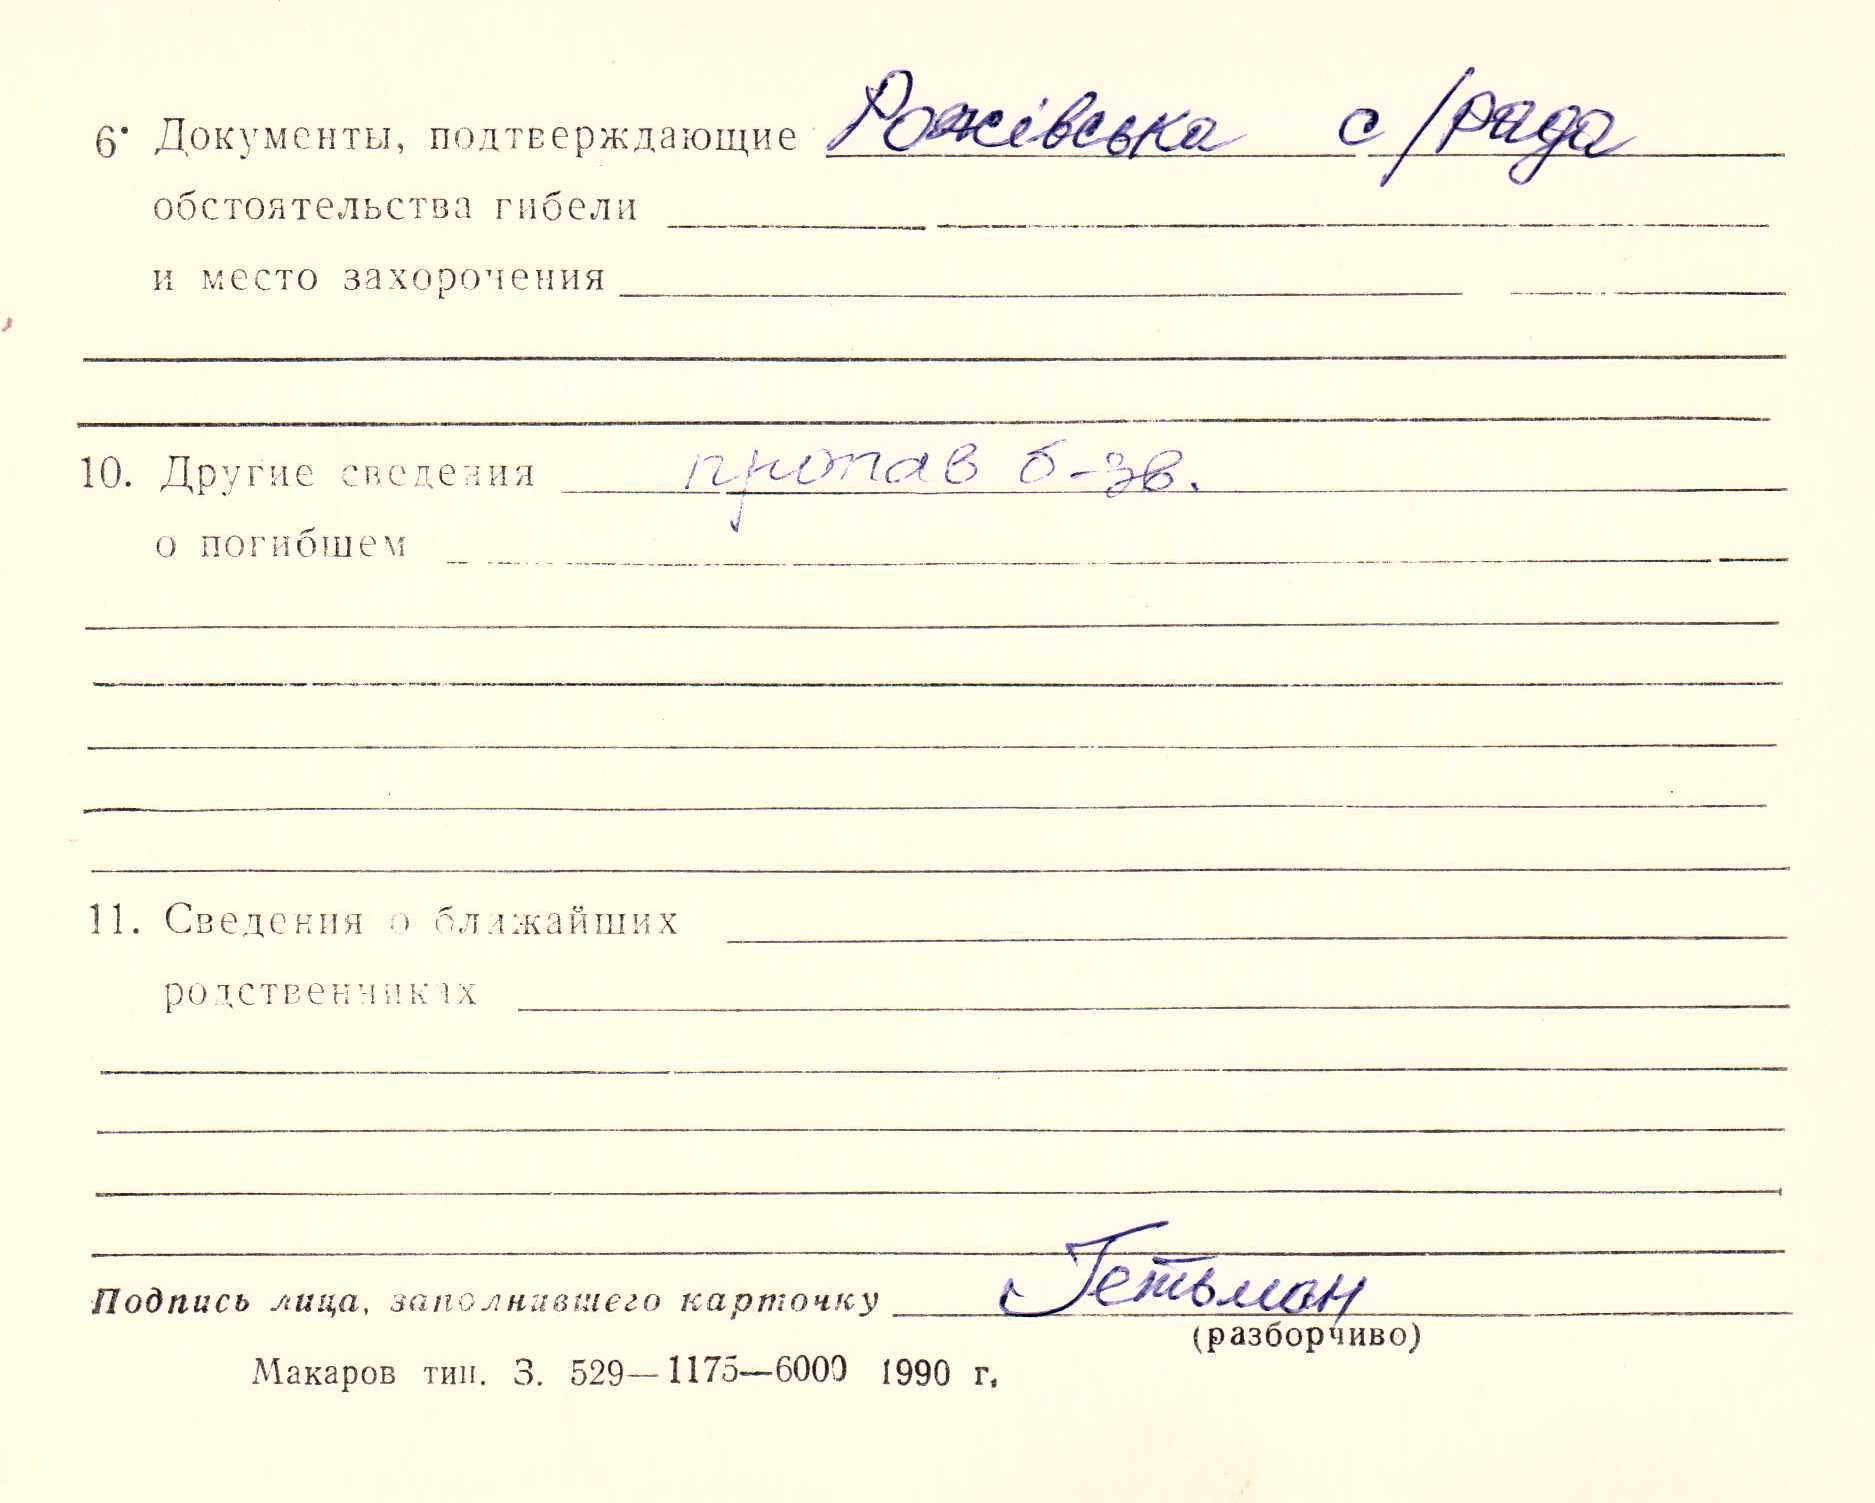 6. Документы, подтверждающие Рожівська с/рада
обстоятельства гибели
и место захорочения
10. Другие сведения пропав б-зв.
о погибшем
11. Сведения о ближайших
родственниках
Подпись лица, заполнившего карточку Гетьман
(разборчиво)
Макаров тип. З. 529—1175—6000 1990 г.